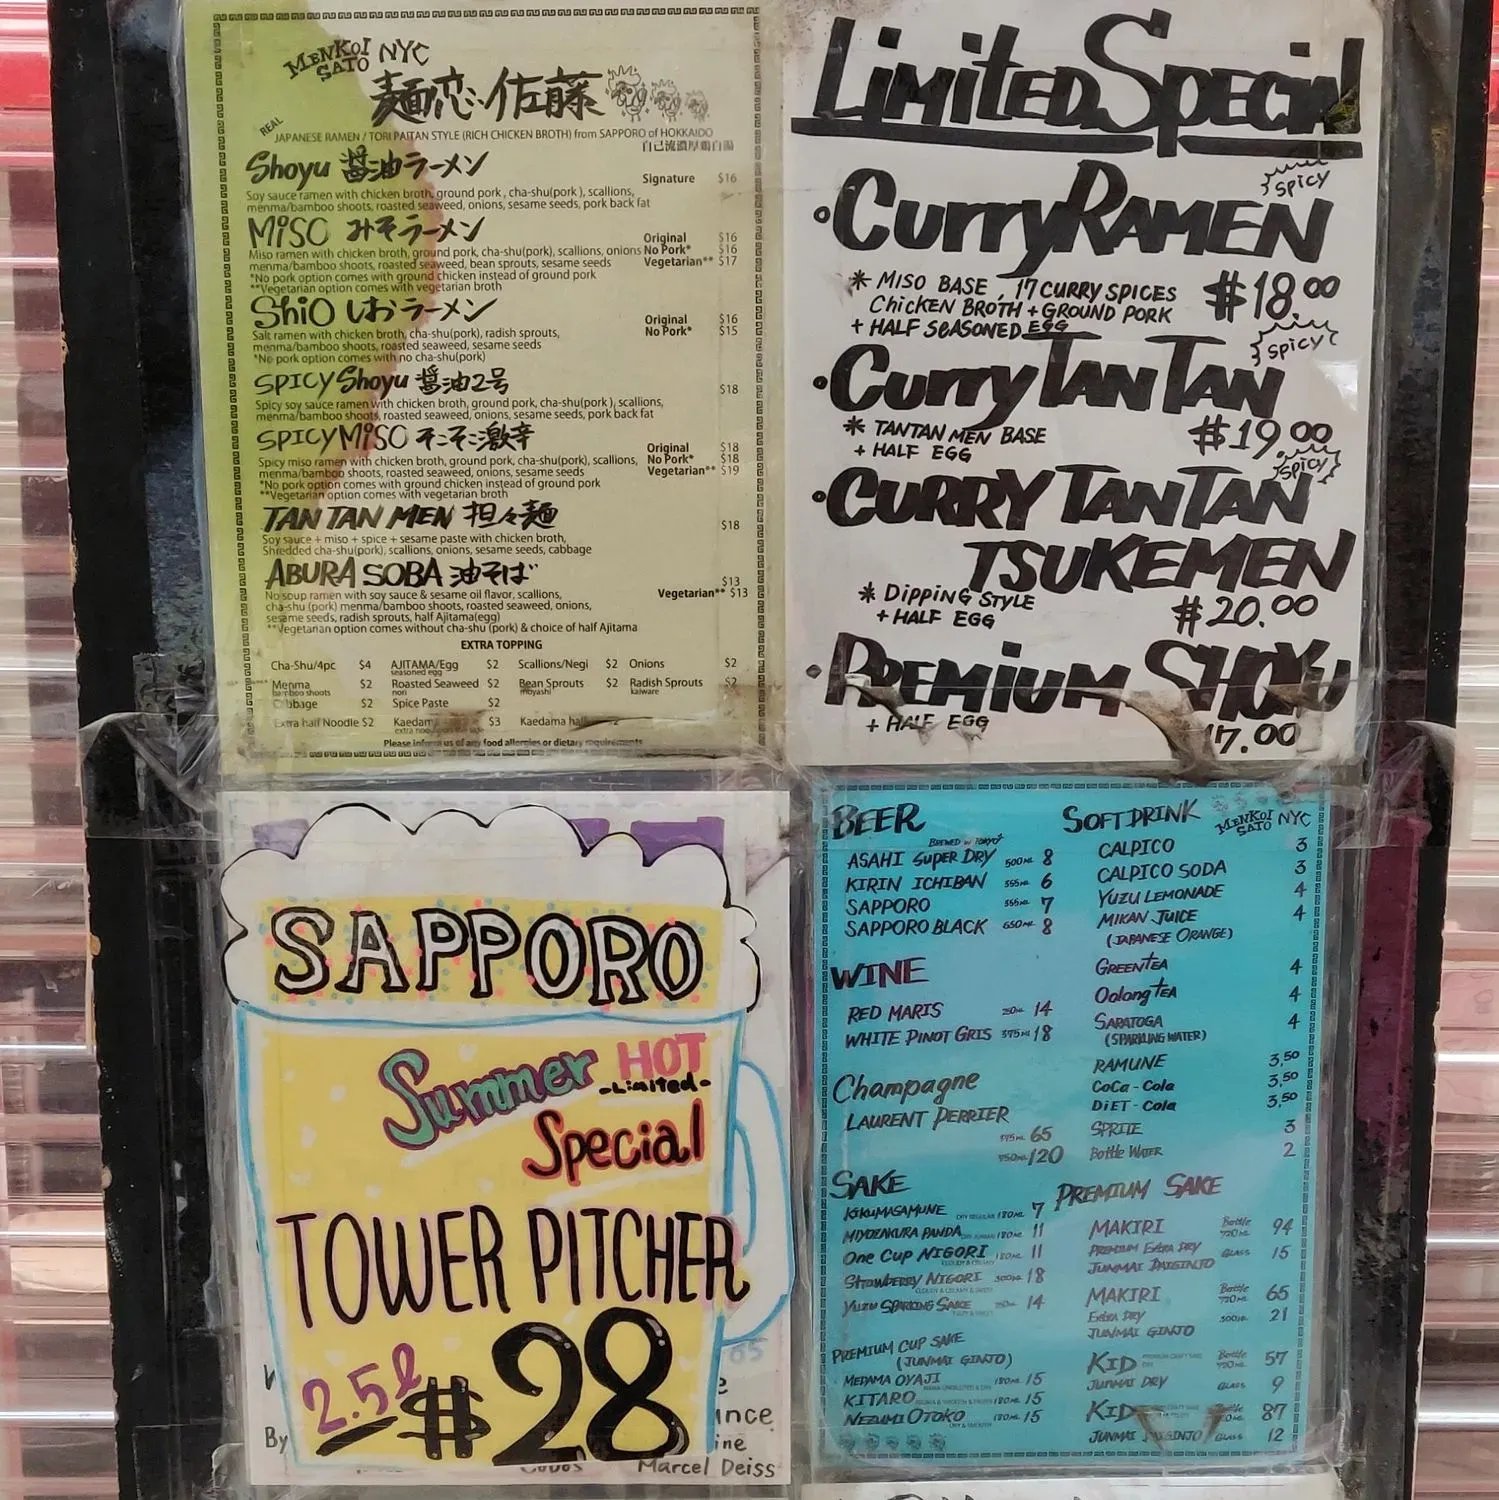 MENKOI SATO NYC
麺恋佐藤
REAL JAPANESE RAMEN / TORI PAITAN STYLE (RICH CHICKEN BROTH) from SAPPORO of HOKKAIDO
自己流濃厚鶏白湯
Shoyu 醤油ラーメン Signature $16
Soy sauce ramen with chicken broth, ground pork, cha-shu(pork ), scallions,
menma/bamboo shoots, roasted seaweed, onions, sesame seeds, pork back fat
MISO みそラーメン Original $16
Miso ramen with chicken broth, ground pork, cha-shu(pork), scallions, onions No Pork* $16
menma/bamboo shoots, roasted seaweed, bean sprouts, sesame seeds Vegetarian** $17
*No pork option comes with ground chicken instead of ground pork
**Vegetarian option comes with vegetable broth
Shio しおラーメン Original $16
Salt ramen with chicken broth, cha-shu(pork), radish sprouts, No Pork* $15
menma/bamboo shoots, roasted seaweed, sesame seeds
*No pork option comes with no cha-shu(pork)
SPICY Shoyu 醤油2号 $18
Spicy soy sauce ramen with chicken broth, ground pork, cha-shu(pork ), scallions,
menma/bamboo shoots, roasted seaweed, onions, sesame seeds, pork back fat
SPICY MISO そこそこ激辛 Original $18
Spicy miso ramen with chicken broth, ground pork, cha-shu(pork), scallions, No Pork* $18
menma/bamboo shoots, roasted seaweed, onions, sesame seeds Vegetarian** $19
*No pork option comes with ground chicken instead of ground pork
**Vegetarian option comes with vegetable broth
TAN TAN MEN 担々麺 $18
Soy sauce + miso + spice + sesame paste with chicken broth,
Shredded cha-shu(pork), scallions, onions, sesame seeds, cabbage
ABURA SOBA 油そば $13
No soup ramen with soy sauce & sesame oil flavor, scallions, Vegetarian** $13
cha-shu (pork) menma/bamboo shoots, roasted seaweed, onions,
sesame seeds, radish sprouts, half Ajitama(egg)
**Vegetarian option comes without cha-shu (pork) & choice of half Ajitama
EXTRA TOPPING
Cha-Shu/4pc $4 AJITAMA/Egg $2 Scallions/Negi $2 Onions $2
seasoned egg
Menma $2 Roasted Seaweed $2 Bean Sprouts $2 Radish Sprouts $2
bamboo shoots nori moyashi kaiware
Cabbage $2 Spice Paste $2
Extra half Noodle $2 Kaedama $3 Kaedama half
Please inform us of any food allergies or dietary requirements
Limited Special
Spicy
• Curry RAMEN
* MISO BASE, 17 CURRY SPICES $18.00
Chicken BROTH + GROUND PORK
+ HALF SEASONED EGG
Spicy
• Curry TAN TAN
* TANTAN MEN BASE $19.00
+ HALF EGG
Spicy
• CURRY TANTAN
TSUKEMEN
* Dipping STYLE $20.00
+ HALF EGG
• PREMIUM SHOYU
+ HALF EGG 17.00
SAPPORO
Summer HOT
-Limited-
Special
TOWER PITCHER
2.5l $28
By
Marcel Deiss
MENKOI SATO NYC
BEER
BREWED in TOKYO
ASAHI SUPER DRY 500ML 8
KIRIN ICHIBAN 355ML 6
SAPPORO 355ML 7
SAPPORO BLACK 650ML 8
WINE
RED MARIS 250ML 14
WHITE PINOT GRIS 375ML 18
Champagne
LAURENT PERRIER
375ML 65
750ML 120
SAKE
KIKUMASAMUNE 180ML 7
MIYOZAKURA PANDA 180ML 11
One Cup NIGORI 180ML 11
Strawberry NIGORI 300ML 18
YUZU SPARKLING SAKE 14
PREMIUM CUP SAKE
(JUNMAI GINJO)
MEDAMA OYAJI 180ML 15
KITARO 180ML 15
NEZUMI OTOKO 180ML 15
SOFT DRINK
CALPICO 3
CALPICO SODA 3
YUZU LEMONADE 4
MIKAN JUICE 4
(JAPANESE ORANGE)
GREEN TEA 4
Oolong TEA 4
SARATOGA 4
(SPARKLING WATER)
RAMUNE 3,50
CoCa-Cola 3,50
DiET-Cola 3,50
SPRITE 3
Bottle WATER 2
PREMIUM SAKE
MAKIRI Bottle 720ML 94
PREMIUM EXTRA DRY GLASS 15
JUNMAI DAIGINJO
MAKIRI Bottle 720ML 65
EXTRA DRY 300ML 21
JUNMAI GINJO
KID Bottle 720ML 57
JUNMAI DRY GLASS 9
KID 87
JUNMAI DAIGINJO GLASS 12